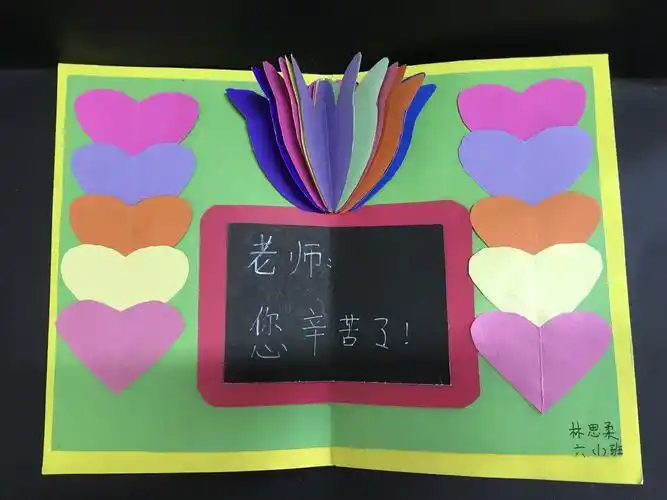 老师:
您辛苦了!
林思柔
六(1)班